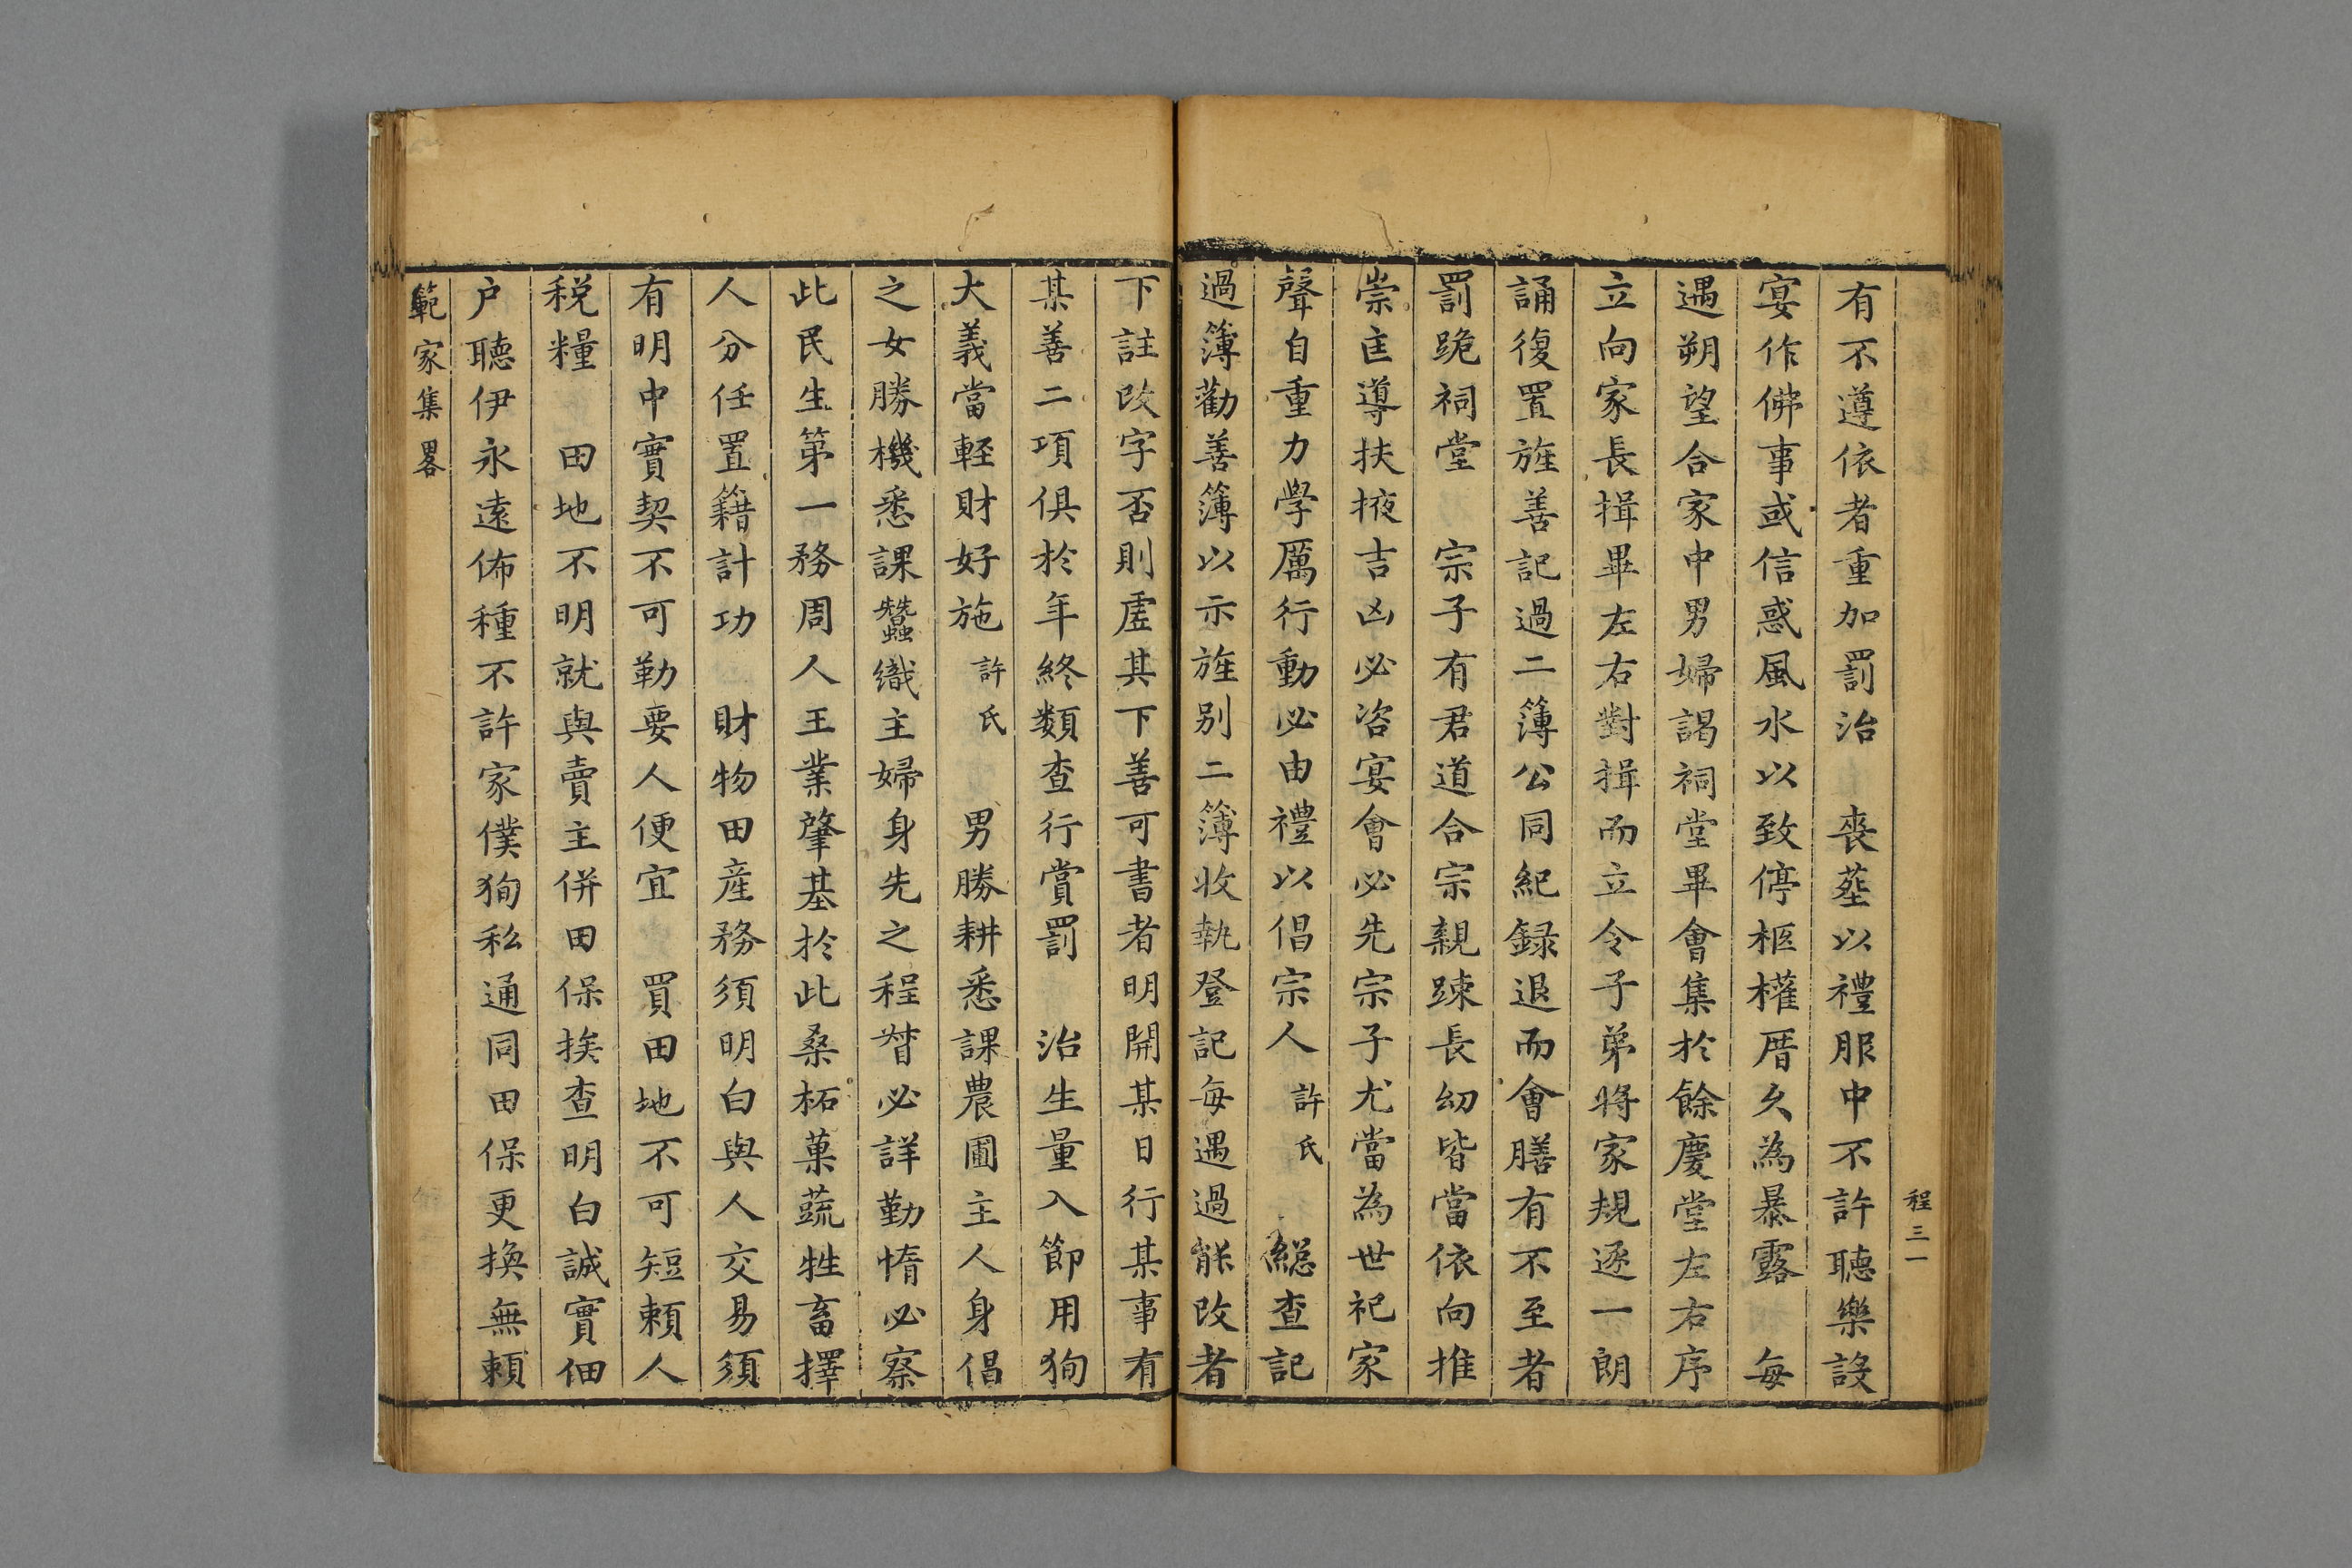 程三一
有不遵依者重加罰治　喪塟以禮服中不許聽樂設
宴作佛事或信惑風水以致停柩欑厝久為暴露　每
遇朔望合家中男婦謁祠堂畢會集於餘慶堂左右序
立向家長揖畢左右對揖而立令子弟將家規逐一朗
誦復置旌善記過二簿公同紀録退而會膳有不至者
罰跪祠堂　宗子有君道合宗親踈長幼皆當依向推
崇匡導扶掖吉凶必咨宴會必先宗子尤當為世祀家
聲自重力學厲行動必由禮以倡宗人許氏　緫查記
過簿勸善簿以示旌别二簿收執登記每遇過能改者
下註改字否則虛其下善可書者明開某日行某事有
某善二項俱於年終類查行賞罰　治生量入節用狥
大義當軽財好施許氏　男勝耕悉課農圃主人身倡
之女勝機悉課蠶織主婦身先之程督必詳勤惰必察
此民生第一務周人王業肇基於此桑柘菓蔬牲畜擇
人分任置籍計功　財物田産務須明白與人交易須
有明中實契不可勒要人便宜　買田地不可短頼人
税糧　田地不明就與賣主併田保挨查明白誠實佃
户聽伊永遠佈種不許家僕狥私通同田保更換無頼
範家集畧